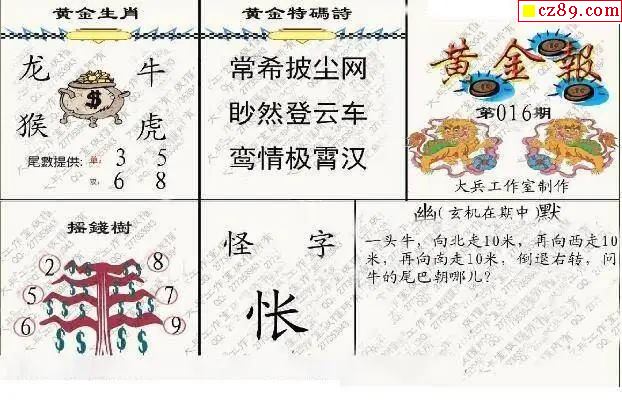 cz89.com
黄金生肖
龙 牛
猴 虎
尾數提供: 单: 3 5
双: 6 8
黄金特碼詩
常希披尘网
眇然登云车
鸾情极霄汉
黄金報
第016期
大兵工作室制作
摇錢樹
2 8
5 7
6 9
怪 字
怅
幽(玄机在期中)默
一头牛，向北走10米，再向西走10
米，再向南走10米，倒退右转，问
牛的尾巴朝哪儿?